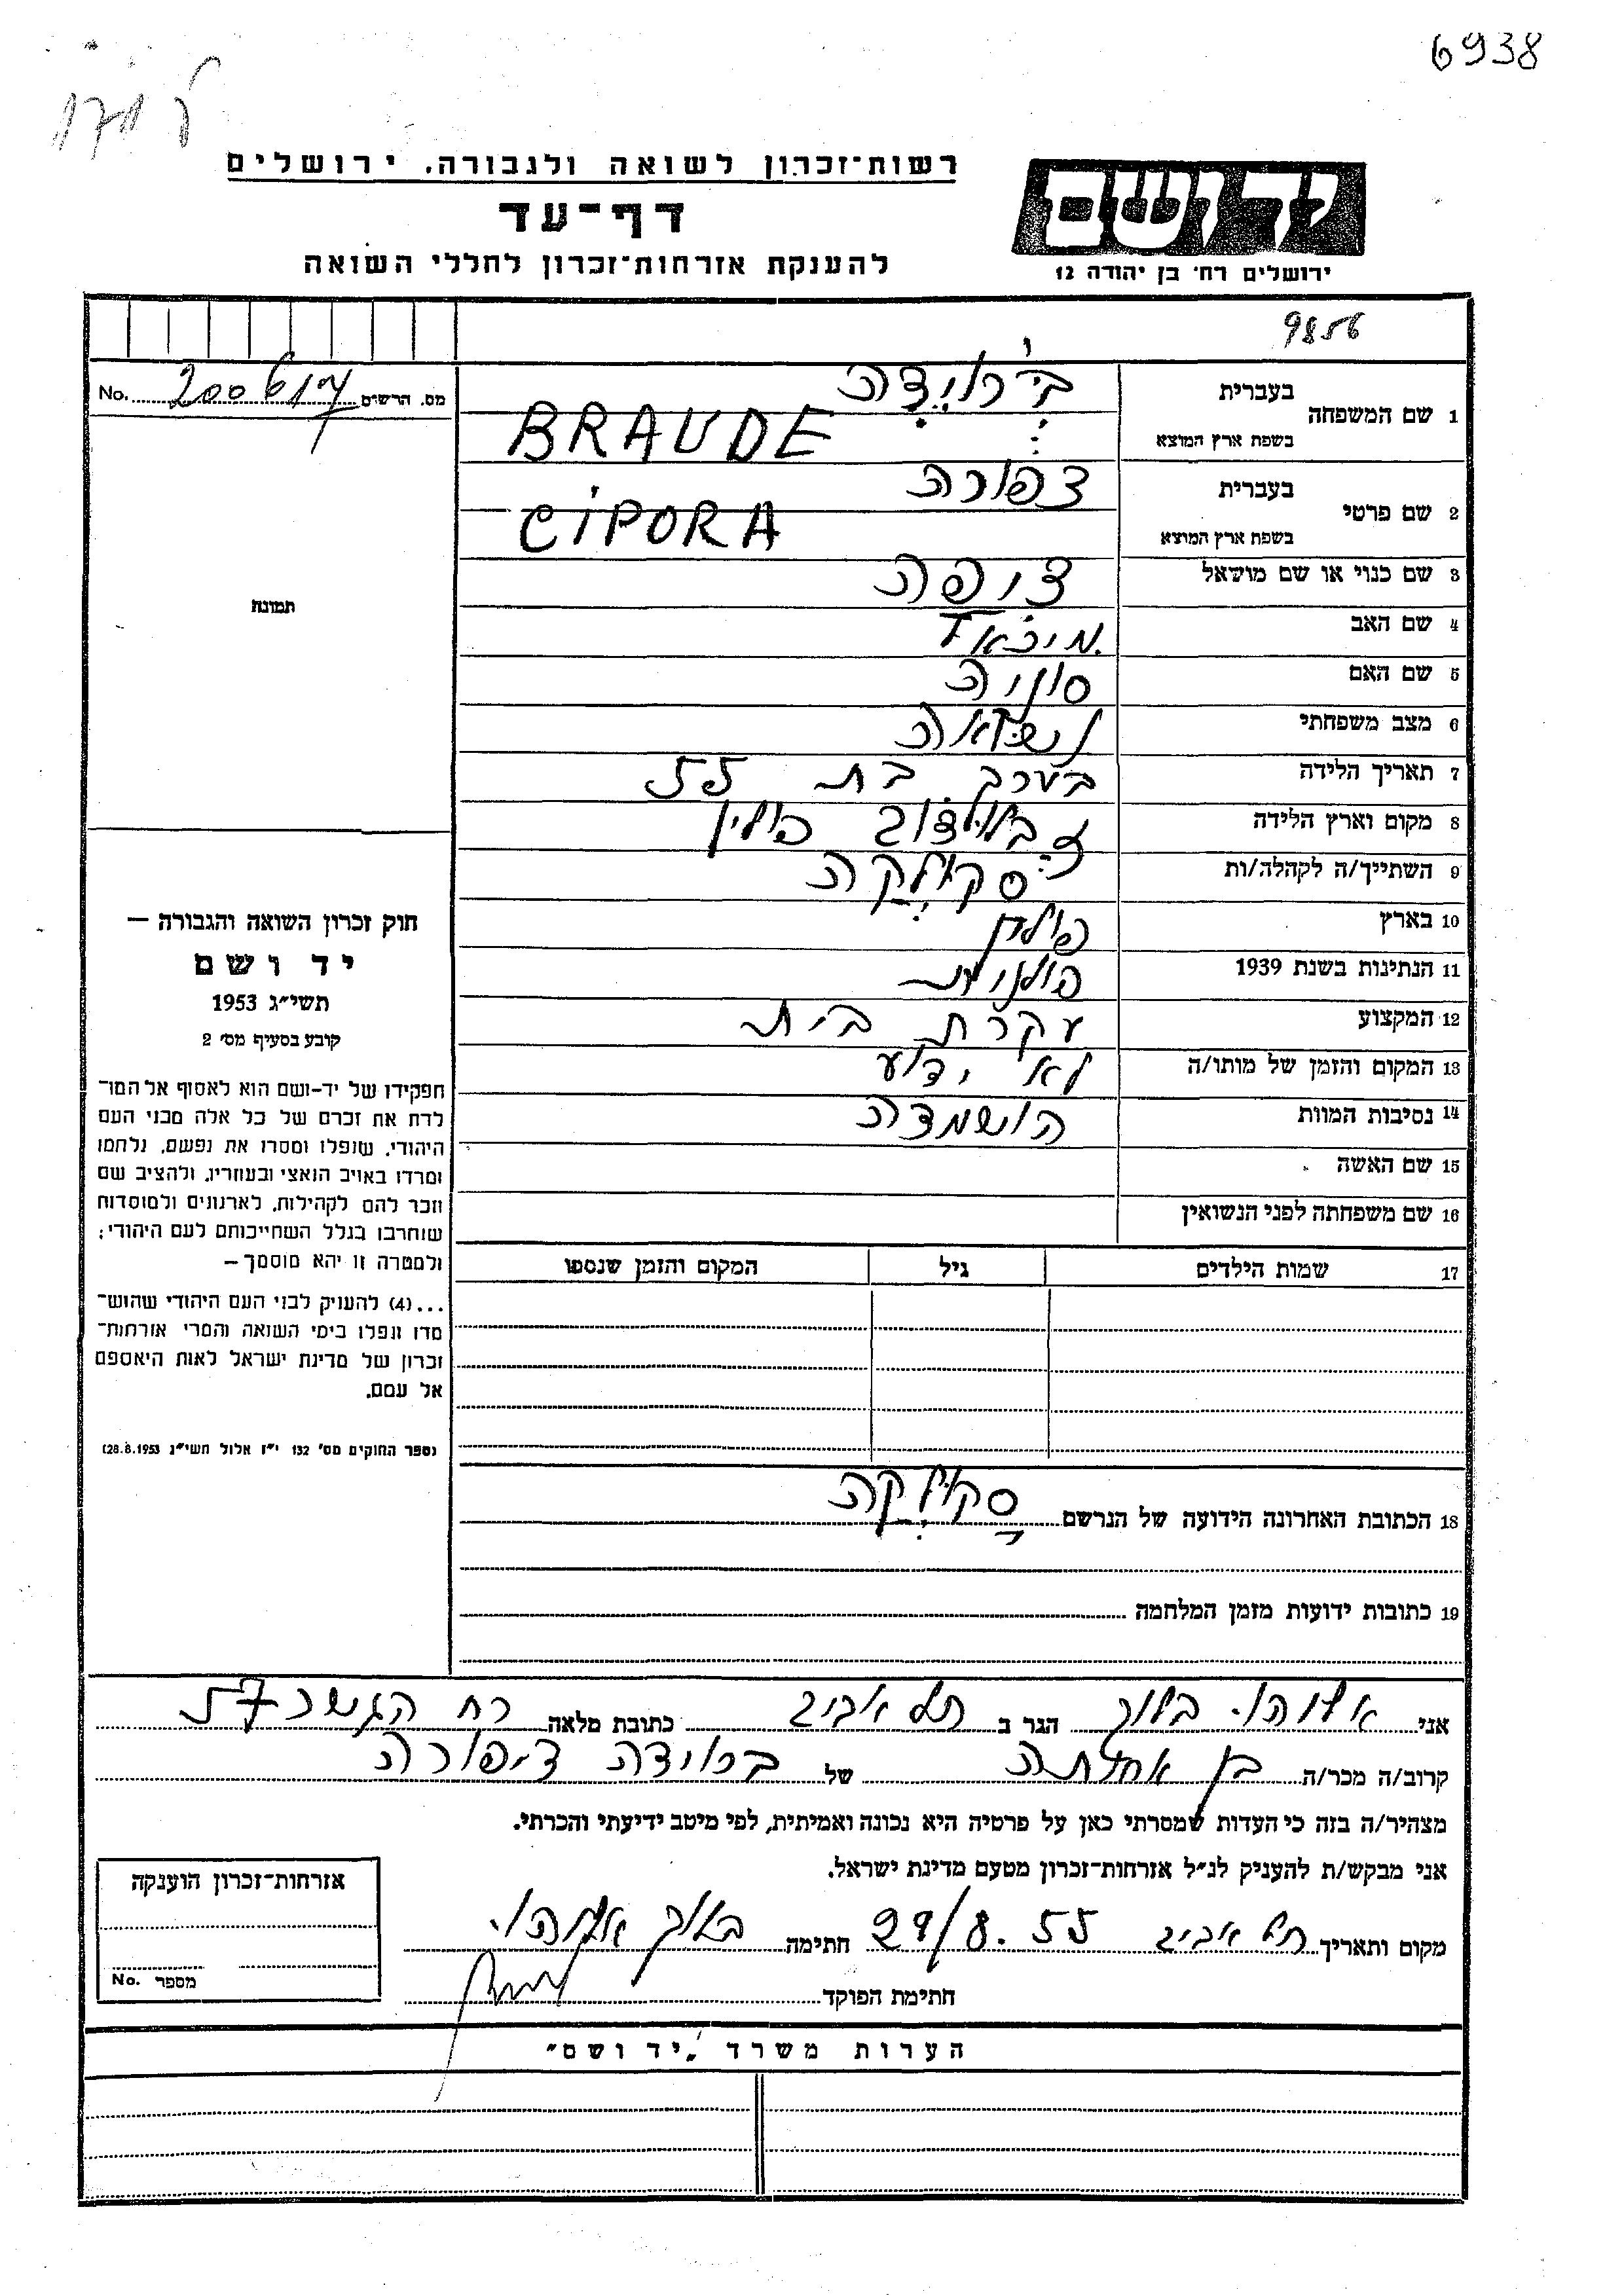 6938
רשות-זכרון לשואה ולגבורה, ירושלים
דף-עד
להענקת אזרחות-זכרון לחללי השואה
יד ושם
ירושלים רח' בן יהודה 12
9856
מס. הרשים No. 200617
1 שם המשפחה
בעברית ברוידה
בשפת ארץ המוצא BRAUDE
2 שם פרטי
בעברית צפורה
בשפת ארץ המוצא CIPORA
3 שם כנוי או שם מושאל ציפה
4 שם האב מיכאל
5 שם האם סוניה
6 מצב משפחתי נשואה
7 תאריך הלידה בערך בת 55
8 מקום וארץ הלידה פולין
9 השתייך/ה לקהלה/ות סקולקה
10 בארץ פולין
11 הנתינות בשנת 1939 פולנית
12 המקצוע עקרת בית
13 המקום והזמן של מותו/ה לא ידוע
14 נסיבות המוות הושמדה
15 שם האשה
16 שם משפחתה לפני הנשואין
17 שמות הילדים גיל המקום והזמן שנספו
תמונה
חוק זכרון השואה והגבורה –
יד ושם
תשי"ג 1953
קובע בסעיף מס' 2
תפקידו של יד-ושם הוא לאסוף אל המו-
לדת את זכרם של כל אלה מבני העם
היהודי, שנפלו ומסרו את נפשם, נלחמו
ומרדו באויב הנאצי ובעוזריו, ולהציב שם
וזכר להם לקהילות, לארגונים ולמוסדות
שנחרבו בגלל השתייכותם לעם היהודי;
ולמטרה זו יהא מוסמך –
...(4) להעניק לבני העם היהודי שהוש-
מדו ונפלו בימי השואה והמרי אזרחות-
זכרון של מדינת ישראל לאות היאספם
אל עמם.
(ספר החוקים מס' 132 י"ז אלול תשי"ג 28.8.1953)
18 הכתובת האחרונה הידועה של הנרשם סקולקה
19 כתובות ידועות מזמן המלחמה
אני אליהו ברוך הגר ב תל אביב כתובת מלאה רח הגשר 57
קרוב/ה מכר/ה בן אחותה של ברוידה ציפורה
מצהיר/ה בזה כי העדות שמסרתי כאן על פרטיה היא נכונה ואמיתית, לפי מיטב ידיעתי והכרתי.
אני מבקש/ת להעניק לנ"ל אזרחות-זכרון מטעם מדינת ישראל.
מקום ותאריך תל אביב 29/8.55 חתימה ברוך אליהו
חתימת הפוקד
אזרחות-זכרון הוענקה
מספר No.
הערות משרד "יד ושם"